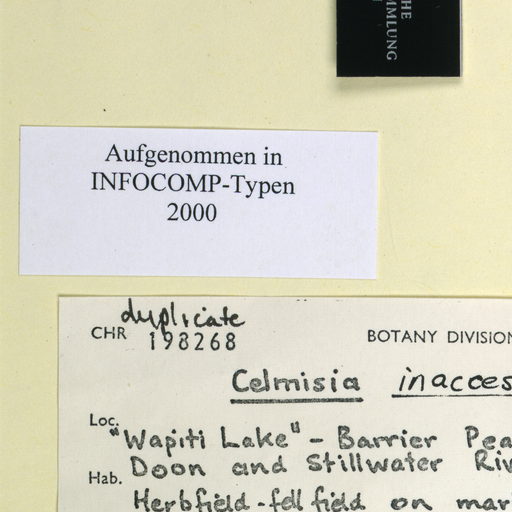 HE
MMLUNG
Aufgenommen in
INFOCOMP-Typen
2000
duplicate
CHR 198268
BOTANY DIVISION
Celmisia inacces
Loc. "Wapiti Lake" - Barrier Pea
Doon and Stillwater Riv
Hab.
Herbfield-fellfield on mar